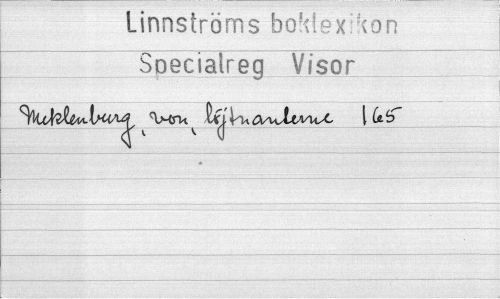 Linnströms boklexikon
Specialreg Visor
Meklenburg, von, löjtnanterne 165